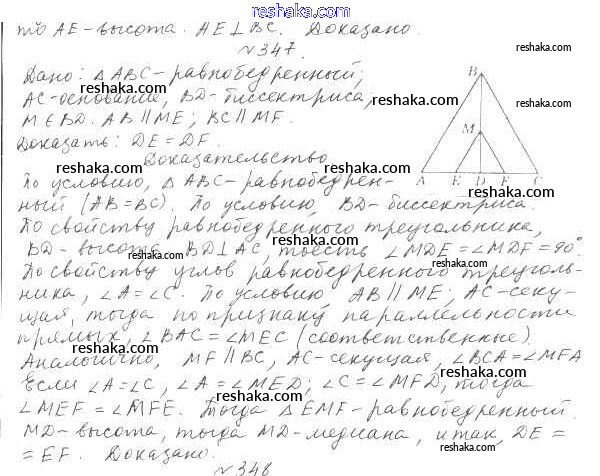 reshaka.com
то AE-высота. AE⊥BC. Доказано.
№347.
Дано: △ABC-равнобедренный;
AC-основание, BD-биссектриса;
M∈BD. AB∥ME; BC∥MF.
Доказать: DE=DF.
Доказательство
По условию, △ABC-равнобедрен-
ный (AB=BC). По условию, BD-биссектриса.
По свойству равнобедренного треугольника,
BD-высота, BD⊥AC, то есть ∠MDE=∠MDF=90°.
По свойству углов равнобедренного треуголь-
ника, ∠A=∠C. По условию AB∥ME; AC-секу-
щая, тогда по признаку параллельности
прямых, ∠BAC=∠MEC (соответственные).
Аналогично, MF∥BC, AC-секущая, ∠BCA=∠MFA
Если ∠A=∠C, ∠A=∠MED; ∠C=∠MFD, тогда
∠MEF=∠MFE. Тогда △EMF-равнобедренный.
MD-высота, тогда MD-медиана, итак, DE=
=EF. Доказано.
№348
B
M
A E D F C
reshaka.com
reshaka.com
reshaka.com
reshaka.com
reshaka.com
reshaka.com
reshaka.com
reshaka.com
reshaka.com
reshaka.com
reshaka.com
reshaka.com
reshaka.com
reshaka.com